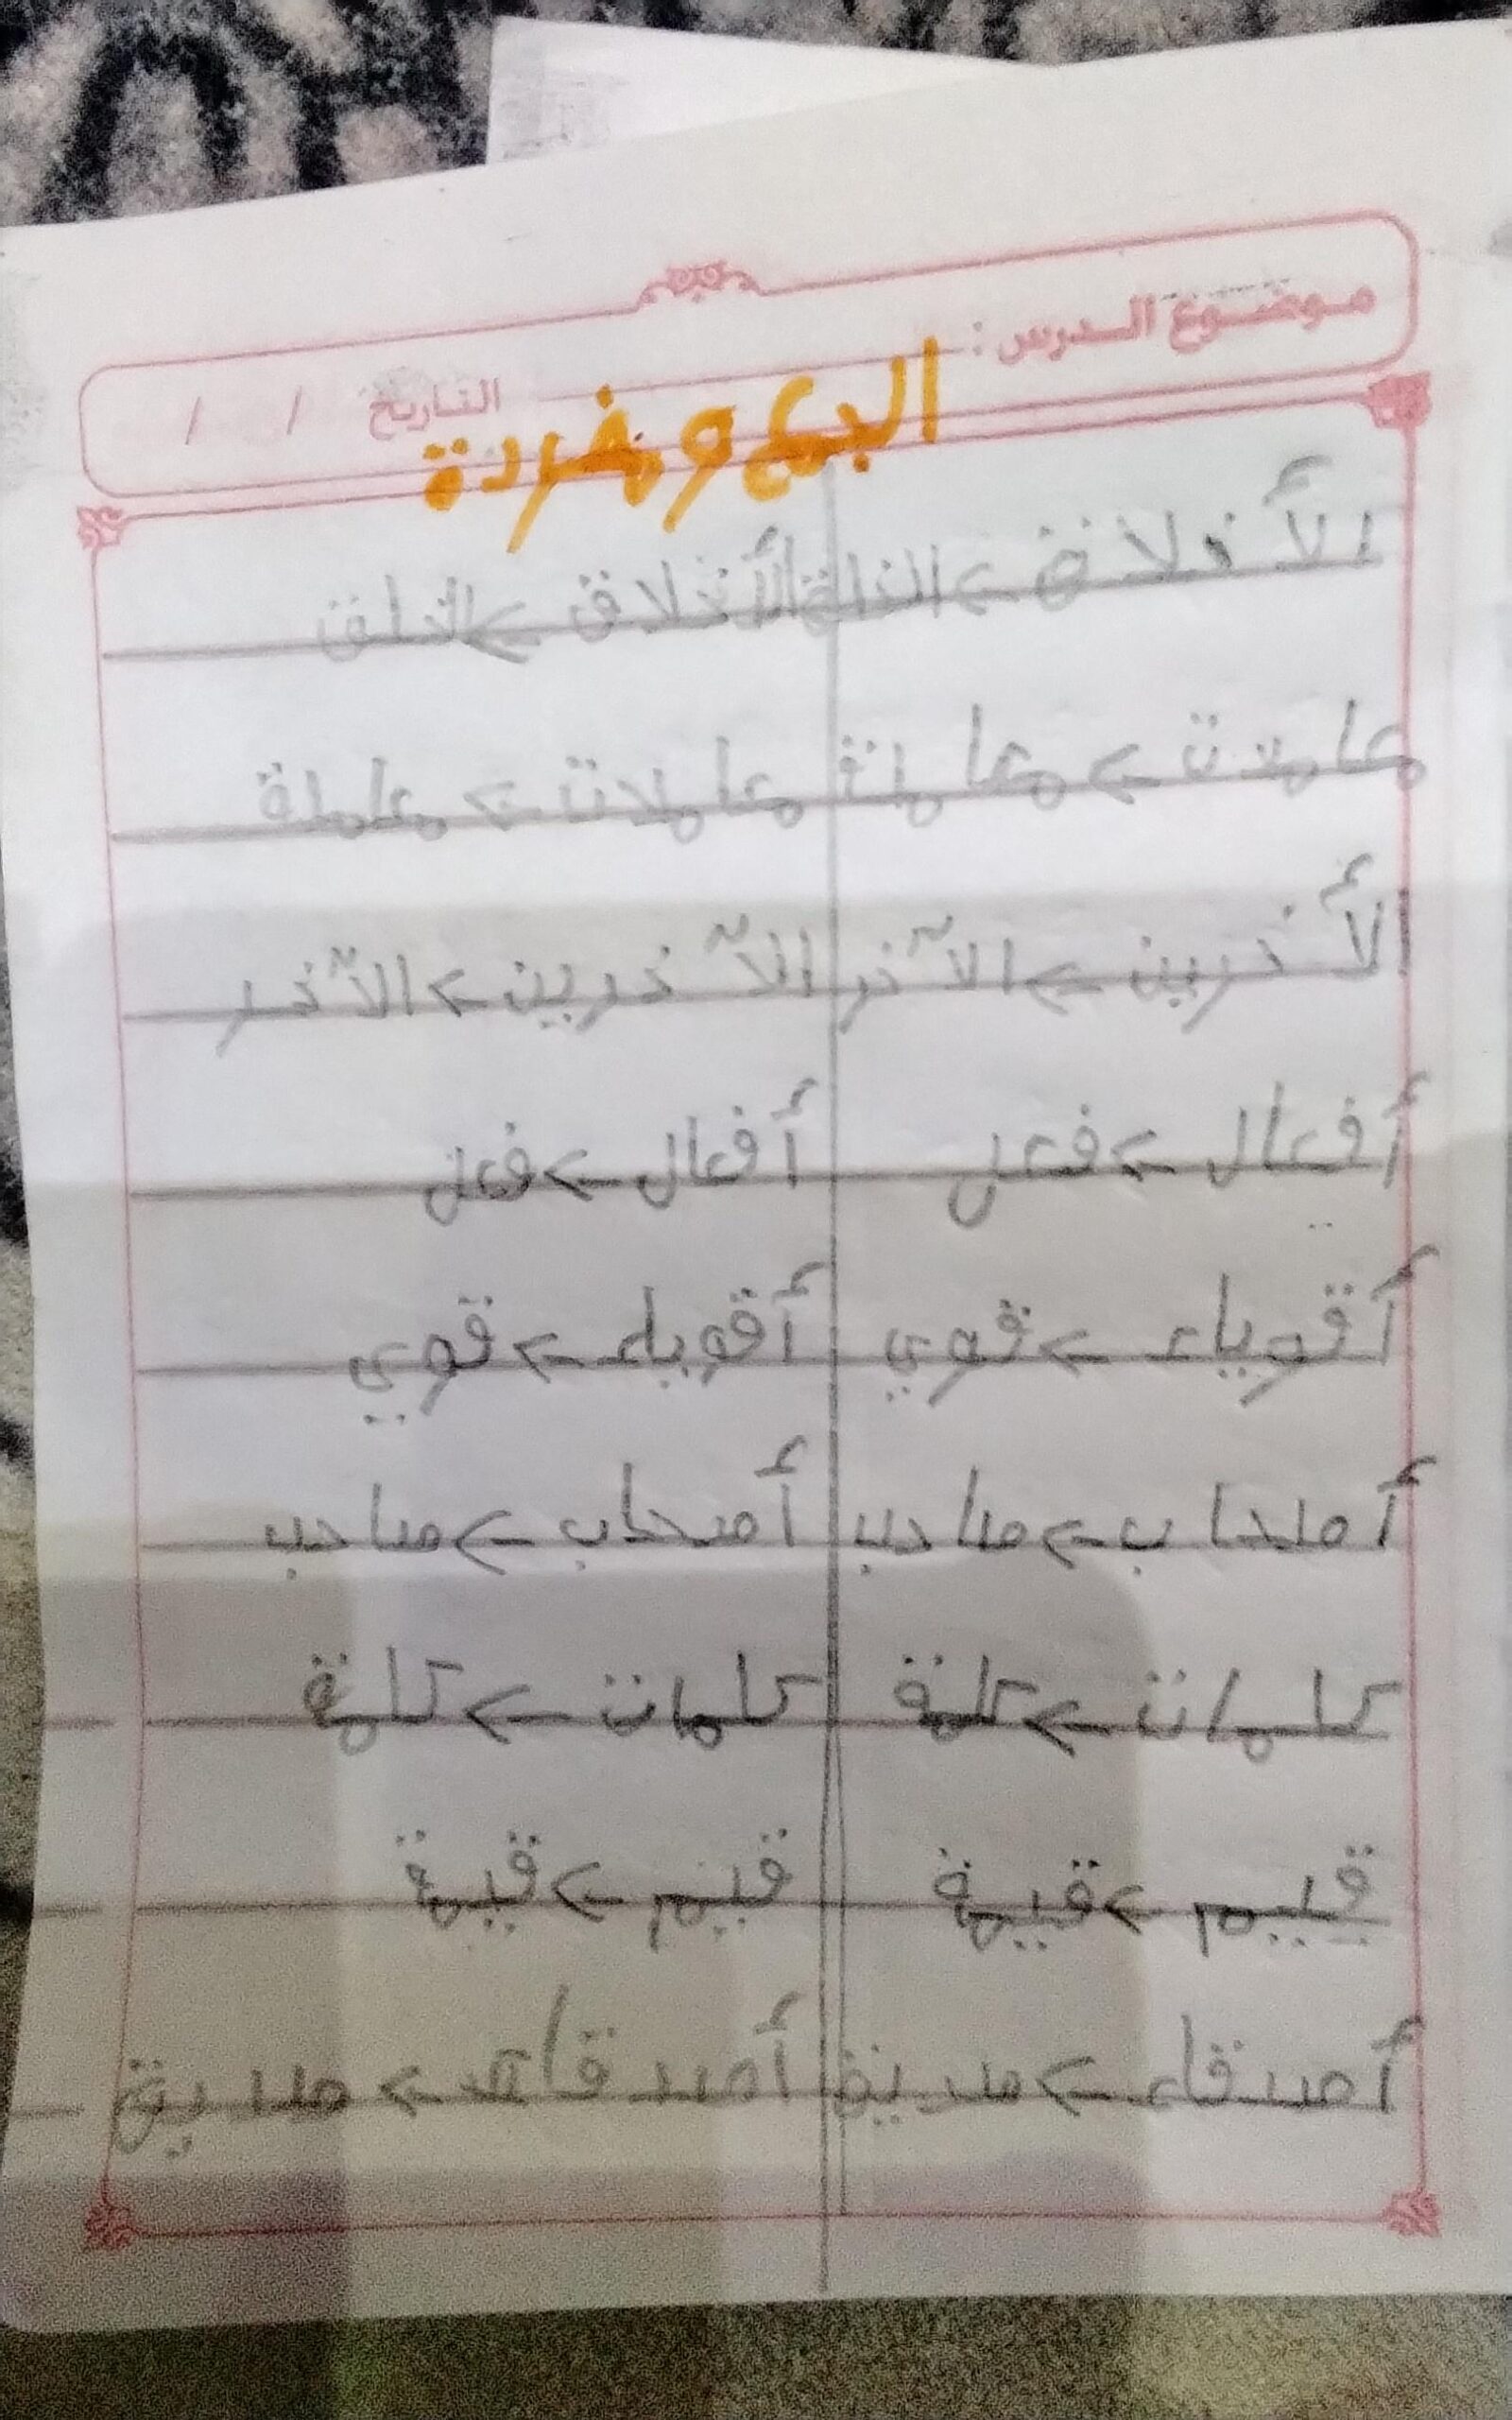 موضوع الدرس :
التاريخ / /
الجمع و مفردة
الأخلاق > الخلق الأخلاق > الخلق
معاملات > معاملة معاملات > معاملة
الأخرين > الآخر الآخرين > الآخر
أفعال > فعل أفعال > فعل
أقوياء > قوي أقوياء > قوي
أصحاب > صاحب أصحاب > صاحب
كلمات > كلمة كلمات > كلمة
قيم > قيمة قيم > قيمة
أصدقاء > صديق أصدقاء > صديق